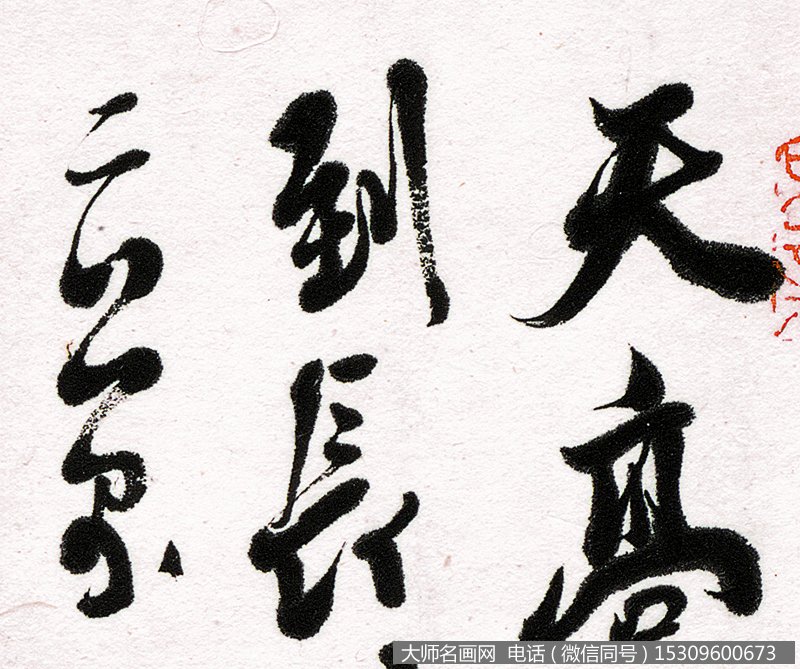 天高
到長
二
大师名画网 电话(微信同号)15309600673